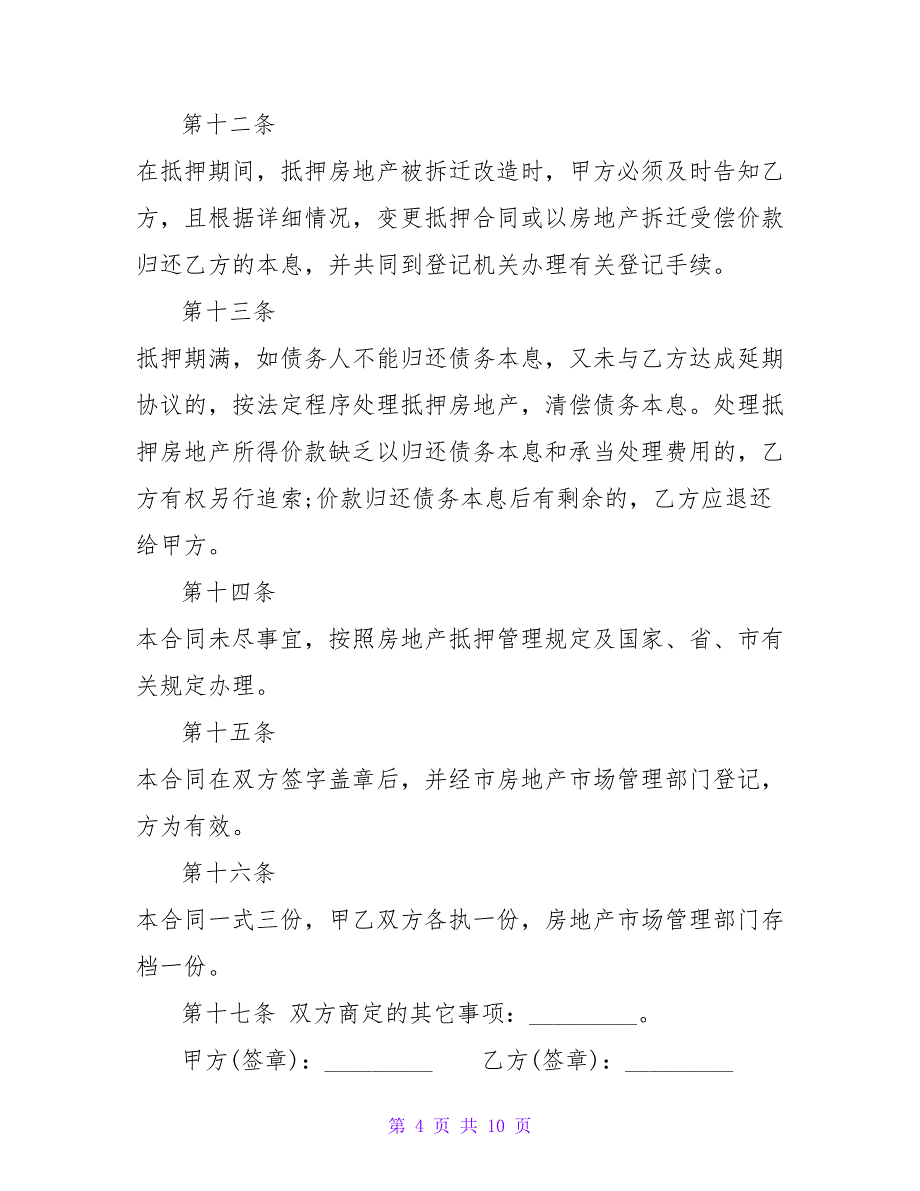 第十二条
在抵押期间，抵押房地产被拆迁改造时，甲方必须及时告知乙
方，且根据详细情况，变更抵押合同或以房地产拆迁受偿价款
归还乙方的本息，并共同到登记机关办理有关登记手续。
第十三条
抵押期满，如债务人不能归还债务本息，又未与乙方达成延期
协议的，按法定程序处理抵押房地产，清偿债务本息。处理抵
押房地产所得价款缺乏以归还债务本息和承当处理费用的，乙
方有权另行追索;价款归还债务本息后有剩余的，乙方应退还
给甲方。
第十四条
本合同未尽事宜，按照房地产抵押管理规定及国家、省、市有
关规定办理。
第十五条
本合同在双方签字盖章后，并经市房地产市场管理部门登记，
方为有效。
第十六条
本合同一式三份，甲乙双方各执一份，房地产市场管理部门存
档一份。
第十七条 双方商定的其它事项：_________。
甲方(签章)：_________ 乙方(签章)：_________
第 4 页 共 10 页